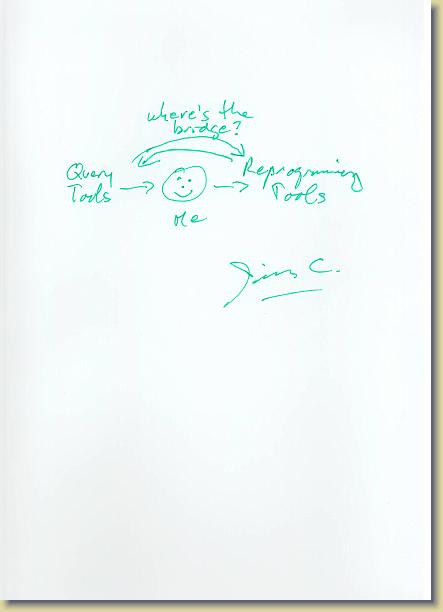 where's the
bridge?
Query
Tools
Reprograming
Tools
Me
C.